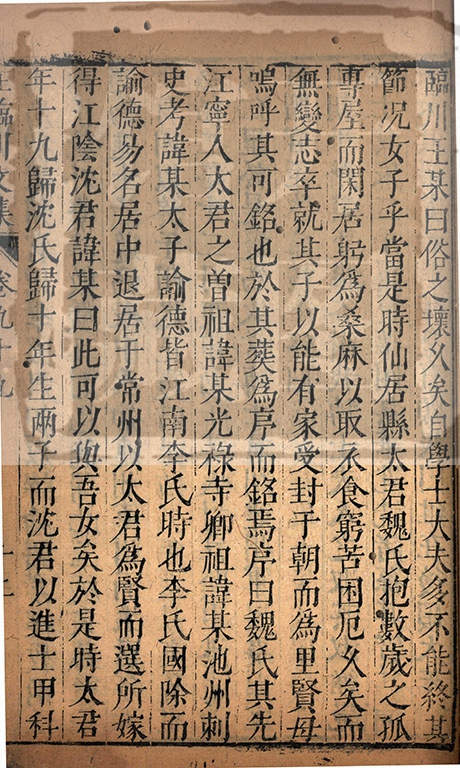 臨川王某曰俗之壞久矣自學士大夫多不能終其
節况女子乎當是時仙居縣太君魏氏抱數歲之孤
專屋而閑居躬爲桑麻以取衣食窮苦困厄久矣而
無變志卒就其子以能有家受封于朝而爲里賢母
嗚呼其可銘也於其葬爲序而銘焉序曰魏氏其先
江寧人太君之曽祖諱某光祿寺卿祖諱某池州刺
史考諱某太子諭德皆江南李氏時也李氏國除而
諭德易名居中退居于常州以太君爲賢而選所嫁
得江陰沈君諱某曰此可以與吾女矣於是時太君
年十九歸沈氏歸十年生兩子而沈君以進士甲科
臨川文集 卷九十九 十二